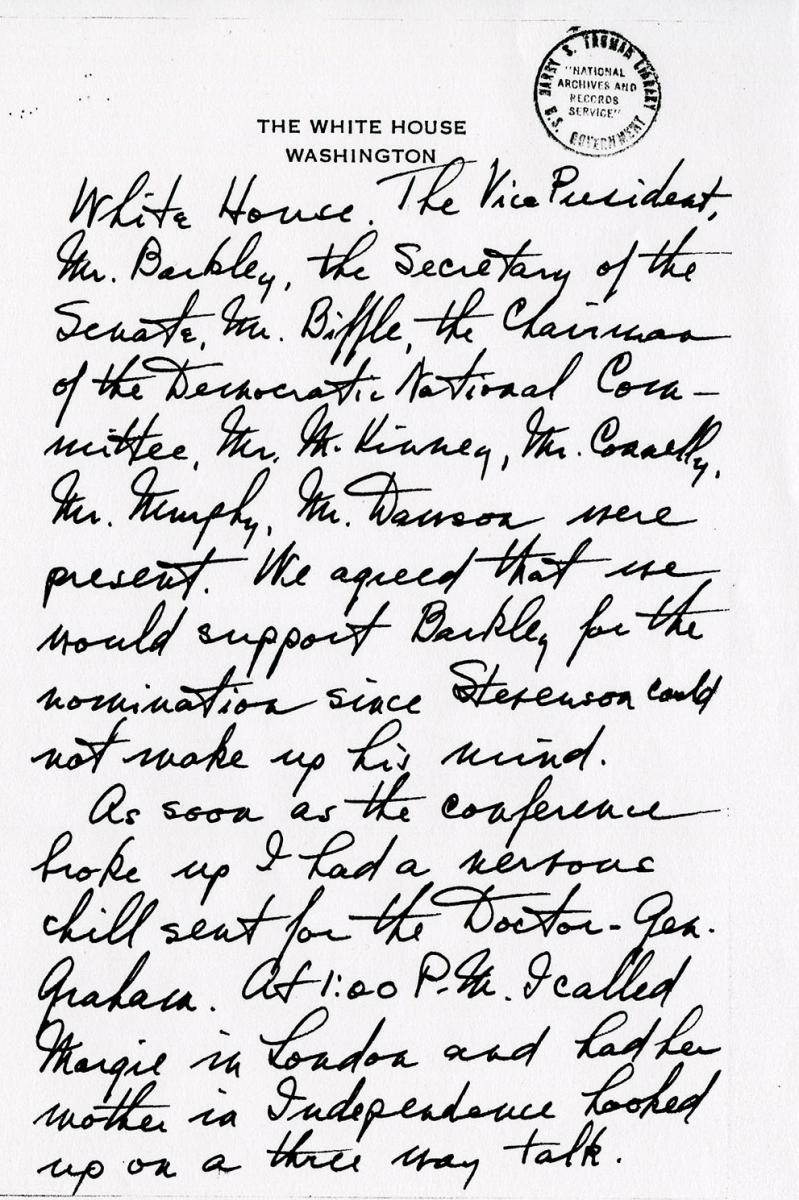 HARRY S. TRUMAN LIBRARY
"NATIONAL
ARCHIVES AND
RECORDS
SERVICE"
U.S. GOVERNMENT
THE WHITE HOUSE
WASHINGTON
White House. The Vice President,
Mr. Barkley, the Secretary of the
Senate, Mr. Biffle, the Chairman
of the Democratic National Com-
mittee, Mr. McKinney, Mr. Connelly,
Mr. Murphy, Mr. Dawson were
present. We agreed that we
would support Barkley for the
nomination since Stevenson could
not make up his mind.
As soon as the conference
broke up I had a nervous
chill sent for the Doctor - Gen.
Graham. At 1:00 P.M. I called
Margie in London and had her
mother in Independence hooked
up on a three way talk.